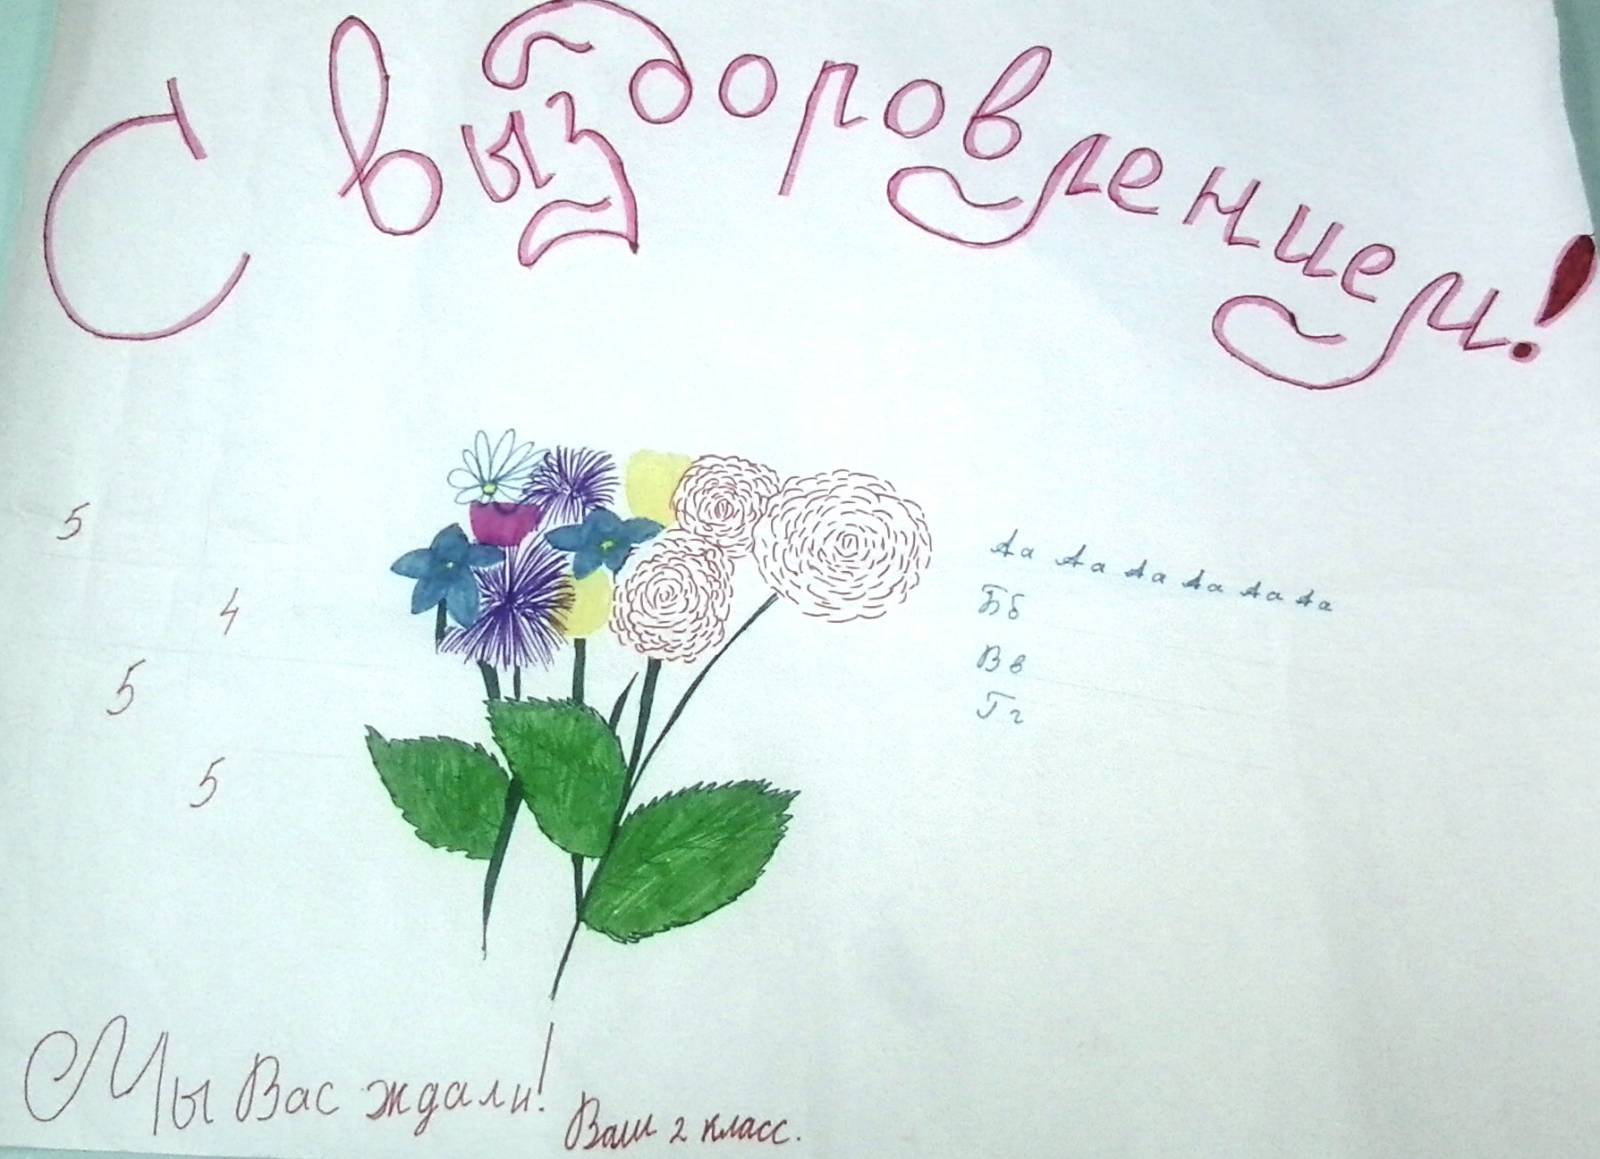 С выздоровлением!
5
Аа Аа Аа Аа Аа Аа
4
Бб
5
Вв
Гг
5
Мы Вас ждали!
Ваш 2 класс.